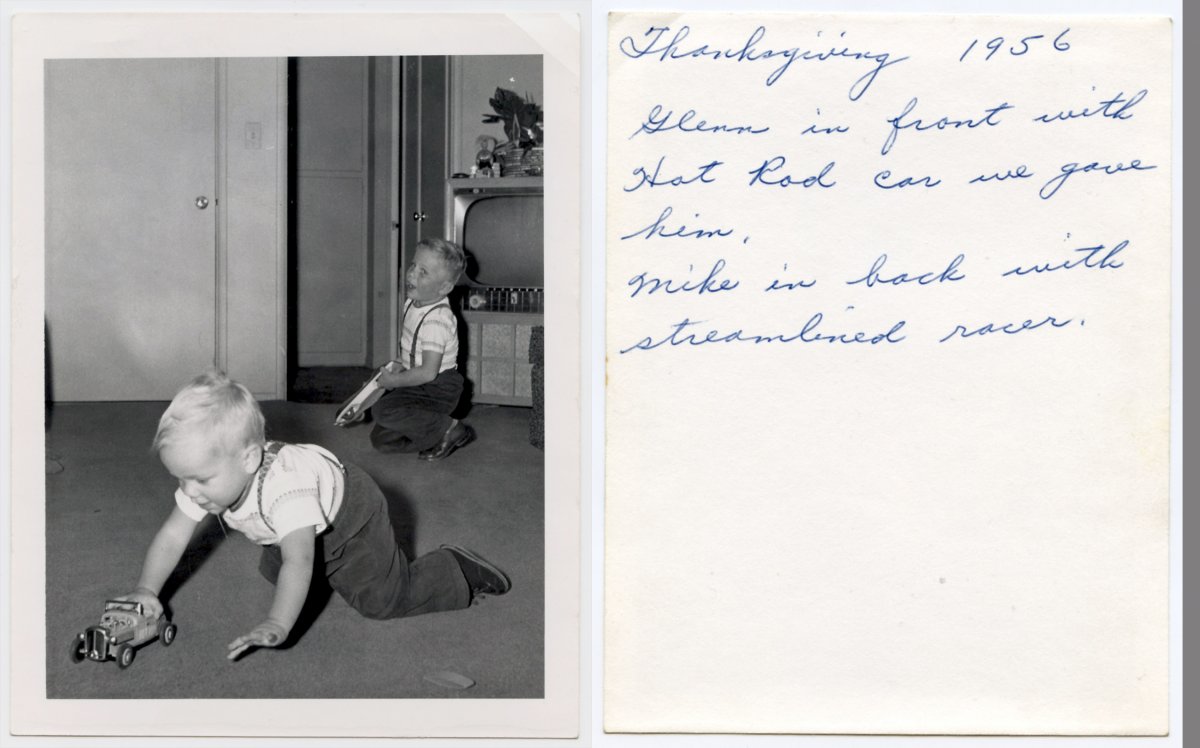 Thanksgiving 1956
Glenn in front with
Hot Rod car we gave
him.
Mike in back with
streamlined racer.